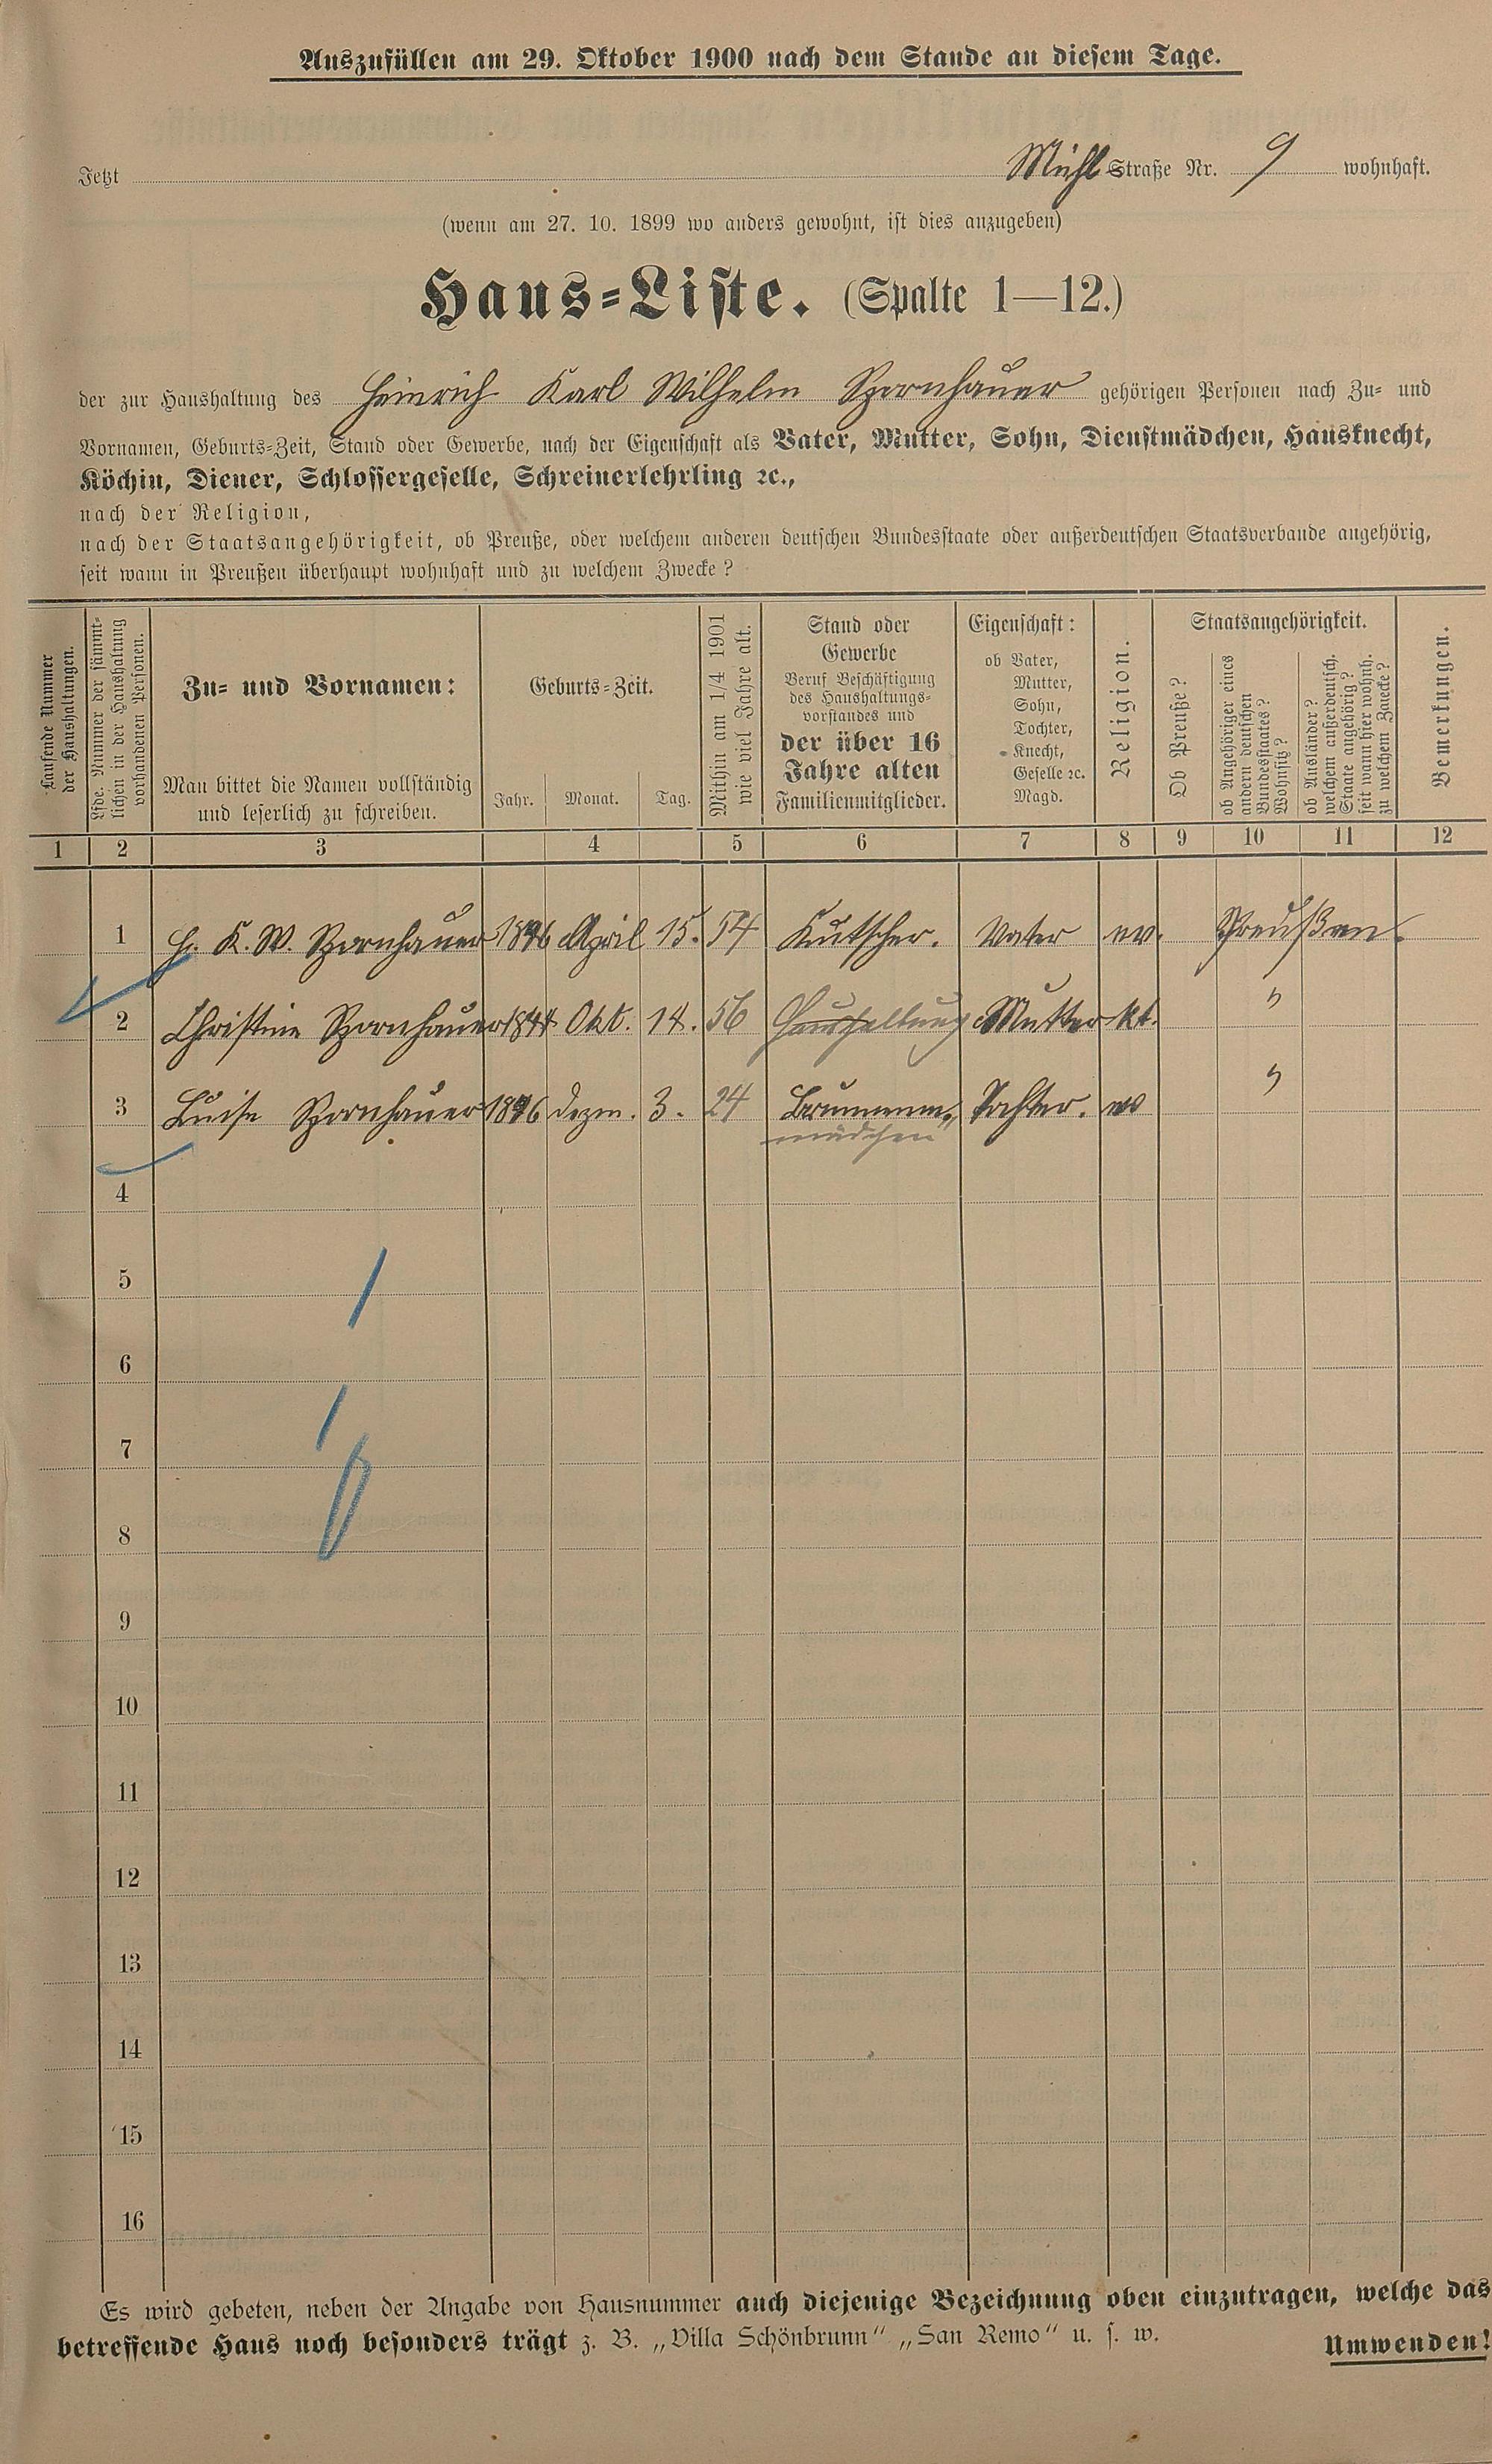 Auszufüllen am 29. Oktober 1900 nach dem Stande an diesem Tage.
Jetzt Mühl Straße Nr. 9 wohnhaft.
(wenn am 27. 10. 1899 wo anders gewohnt, ist dies anzugeben)
Haus-Liste. (Spalte 1—12.)
der zur Haushaltung des Heinrich Karl Wilhelm Spornhauer gehörigen Personen nach Zu- und
Vornamen, Geburts-Zeit, Stand oder Gewerbe, nach der Eigenschaft als Vater, Mutter, Sohn, Dienstmädchen, Hausknecht,
Köchin, Diener, Schlossergeselle, Schreinerlehrling ꝛc.,
nach der Religion,
nach der Staatsangehörigkeit, ob Preuße, oder welchem anderen deutschen Bundesstaate oder außerdeutschen Staatsverbande angehörig,
seit wann in Preußen überhaupt wohnhaft und zu welchem Zwecke?
Laufende Nummer
der Haushaltungen.
Lfde. Nummer der sämmt-
lichen in der Haushaltung
vorhandenen Personen.
Zu- und Vornamen:
Man bittet die Namen vollständig
und leserlich zu schreiben.
Geburts-Zeit.
Jahr. Monat. Tag.
Mithin am 1/4 1901
wie viel Jahre alt.
Stand oder
Gewerbe
Beruf Beschäftigung
des Haushaltungs-
vorstandes und
der über 16
Jahre alten
Familienmitglieder.
Eigenschaft:
ob Vater,
Mutter,
Sohn,
Tochter,
Knecht,
Geselle ꝛc.
Magd.
Religion.
Staatsangehörigkeit.
Ob Preuße?
ob Angehöriger eines
andern deutschen
Bundesstaates?
Wohnsitz?
ob Ausländer?
welchem außerdeutsch.
Staate angehörig?
seit wann hier wohnh.
zu welchem Zwecke?
Bemerkungen.
1 2 3 4 5 6 7 8 9 10 11 12
1 H. K. W. Spornhauer 1846 April 15. 54 Kutscher. Vater ev. Preußen.
2 Christine Spornhauer 1844 Okt. 14. 56 Haushaltung Mutter kt. "
3 Luise Spornhauer 1876 Dezm. 3. 24 Brunnen- Tochter. ev "
mädchen
4
5
6
7
8
9
10
11
12
13
14
15
16
Es wird gebeten, neben der Angabe von Hausnummer auch diejenige Bezeichnung oben einzutragen, welche das
betreffende Haus noch besonders trägt z. B. „Villa Schönbrunn“ „San Remo“ u. s. w. Umwenden!